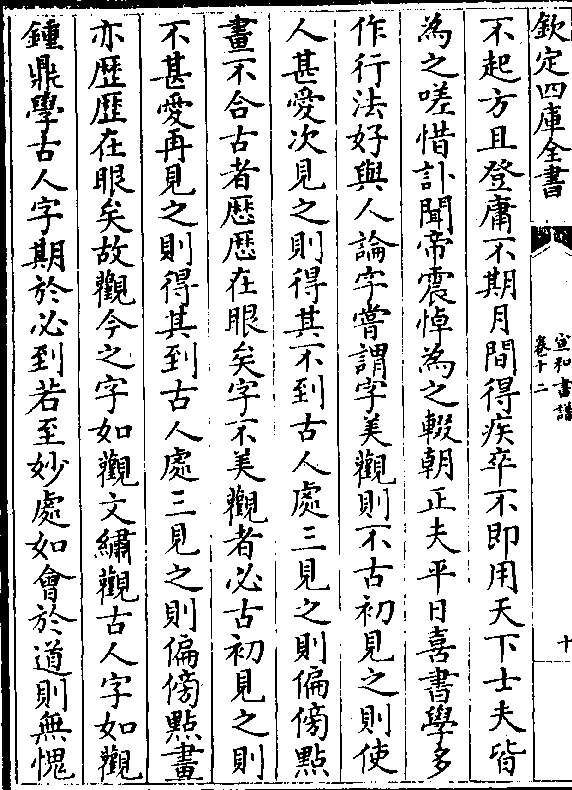 欽定四庫全書
宣和書譜
卷十二
十
不起方且登庸不期月間得疾卒不即用天下士夫皆
為之嗟惜訃聞帝震悼為之輟朝正夫平日喜書學多
作行法好與人論字嘗謂字美觀則不古初見之則使
人甚愛次見之則得其不到古人處三見之則偏傍點
畫不合古者歴歴在眼矣字不美觀者必古初見之則
不甚愛再見之則得其到古人處三見之則偏傍點畫
亦歴歴在眼矣故觀今之字如觀文繡觀古人字如觀
鍾鼎學古人字期於必到若至妙處如會於道則無愧